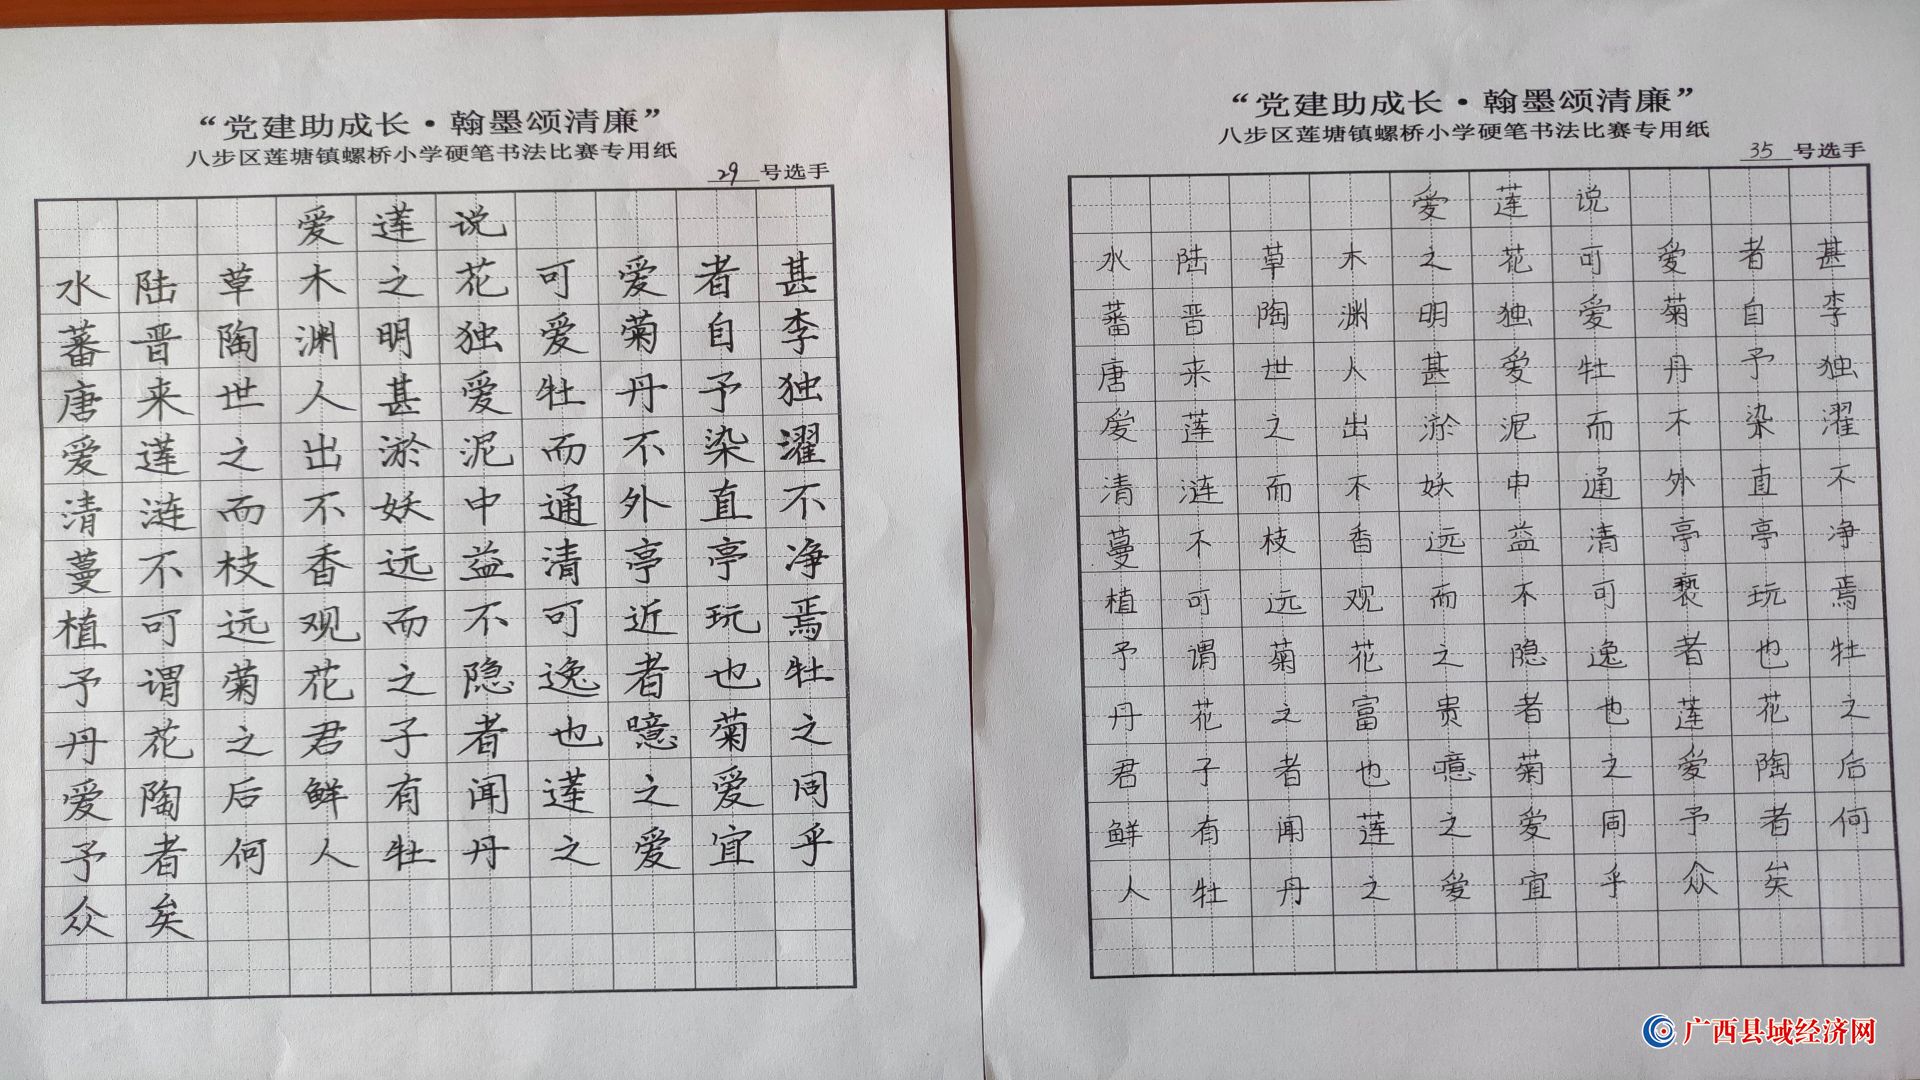 “党建助成长·翰墨颂清廉”
八步区莲塘镇螺桥小学硬笔书法比赛专用纸
29号选手
爱莲说
水陆草木之花可爱者甚
蕃晋陶渊明独爱菊自李
唐来世人甚爱牡丹予独
爱莲之出淤泥而不染濯
清涟而不妖中通外直不
蔓不枝香远益清亭亭净
植可远观而不可近玩焉
予谓菊花之隐逸者也牡
丹花之君子者也噫菊之
爱陶后鲜有闻莲之爱周
予者何人牡丹之爱宜乎
众矣
“党建助成长·翰墨颂清廉”
八步区莲塘镇螺桥小学硬笔书法比赛专用纸
35号选手
爱莲说
水陆草木之花可爱者甚
蕃晋陶渊明独爱菊自李
唐来世人甚爱牡丹予独
爱莲之出淤泥而不染濯
清涟而不妖中通外直不
蔓不枝香远益清亭亭净
植可远观而不可亵玩焉
予谓菊花之隐逸者也牡
丹花之富贵者也莲花之
君子者也噫菊之爱陶后
鲜有闻莲之爱周予者何
人牡丹之爱宜乎众矣
广西县域经济网